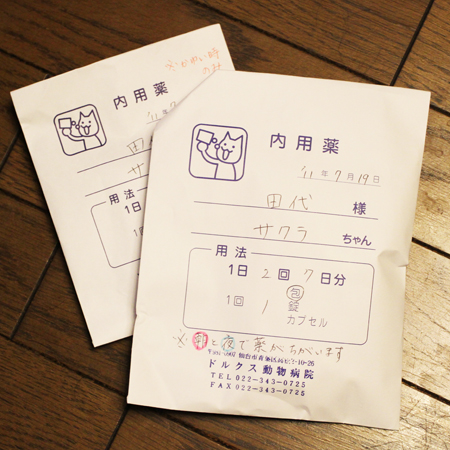 ※かゆい時
のみ
内用薬
'11年7
田
サ
用法
1日
1回
内用薬
'11年7月19日
田代 様
サクラ ちゃん
用法
1日 2回 7日分
1回 1 包 錠
カプセル
※朝と夜で薬がちがいます
仙台市青葉区
ドルクス動物病院
TEL022-343-0725
FAX022-343-0725